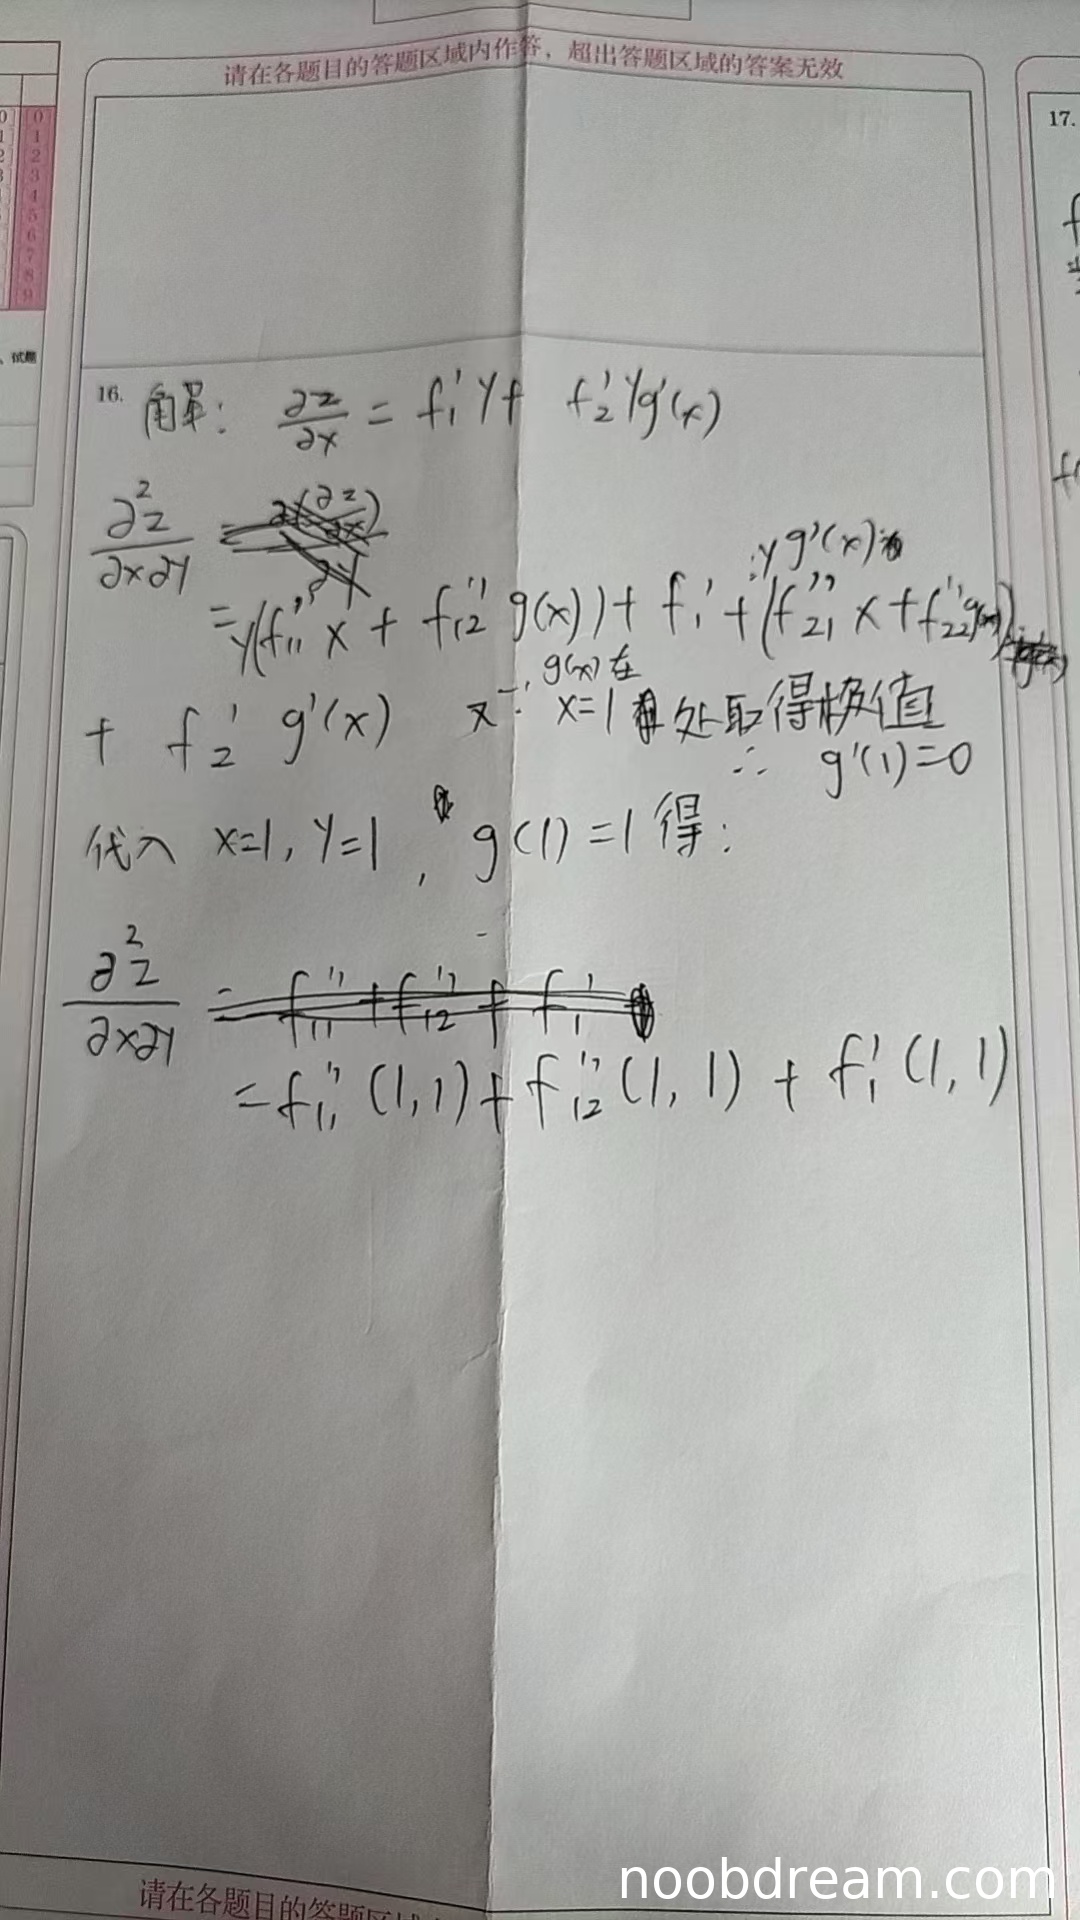 请在各题目的答题区域内作答，超出答题区域的答案无效
17.
、试题
16. 解: ∂z/∂x = f₁'y + f₂'yg'(x)
∂²z/∂x∂y
= y(f₁₁''x + f₁₂''g(x)) + f₁' + (f₂₁''x + f₂₂''g(x))·yg'(x)
+ f₂'g'(x) ∵ g(x)在x=1处取得极值
∴ g'(1)=0
代入 x=1, y=1, g(1)=1 得:
∂²z/∂x∂y
= f₁₁''(1,1) + f₁₂''(1,1) + f₁'(1,1)
请在各题目的答题区域
noobdream.com